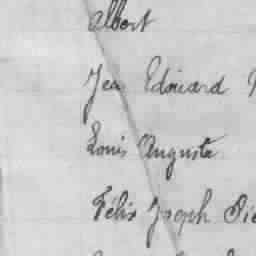 Albert
Jea Edouard
Louis Auguste
Félix Joseph